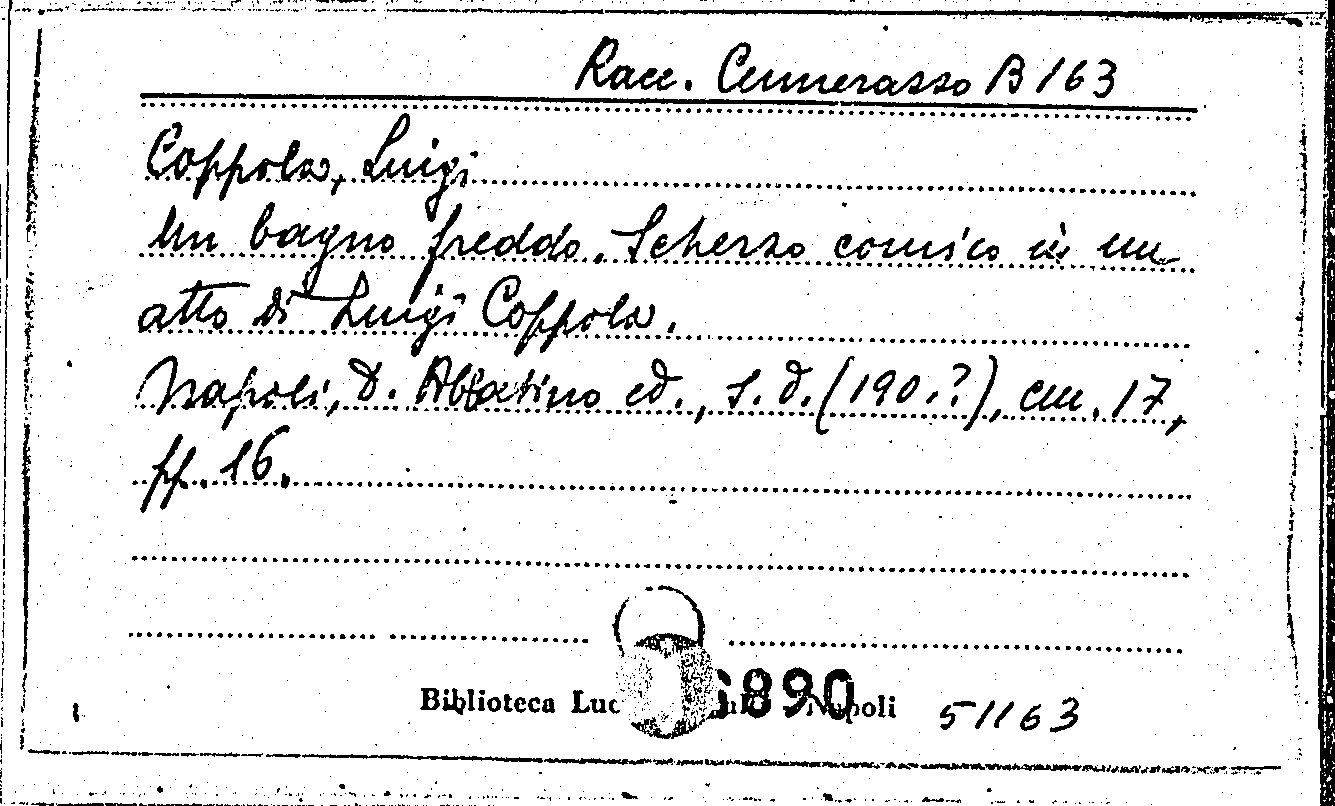 Racc. Cennerazzo B 163
Coppola, Luigi
Un bagno freddo. Scherzo comico in un
atto di Luigi Coppola.
Napoli, D. Abbatino ed., s. d. (190.?), cm. 17,
pp. 16.
890
Biblioteca Napoli 51163